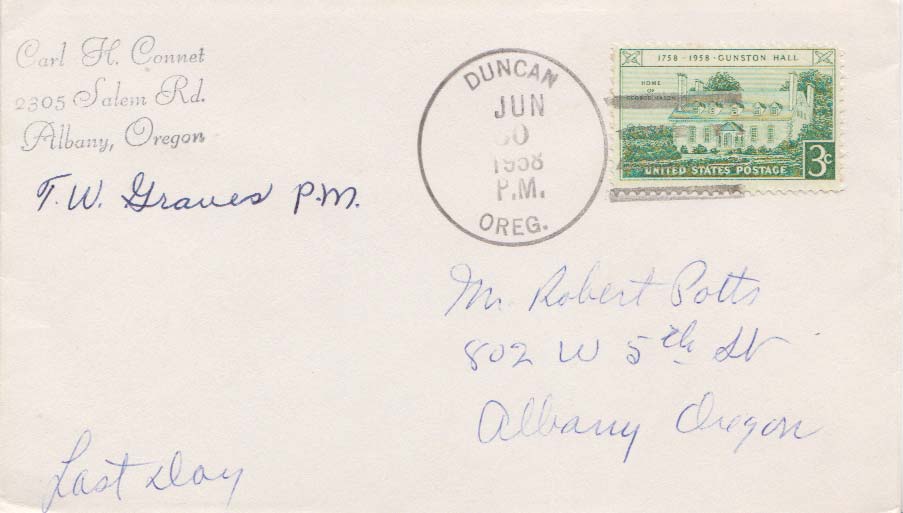 Carl H. Connet
2305 Salem Rd.
Albany, Oregon
T. W. Graves P.M.
DUNCAN
JUN
30
1958
P.M.
OREG.
1758 - 1958 · GUNSTON HALL
HOME
OF
GEORGE MASON
UNITED STATES POSTAGE
3c
Mr. Robert Potts
802 W 5th St
Albany Oregon
Last Day